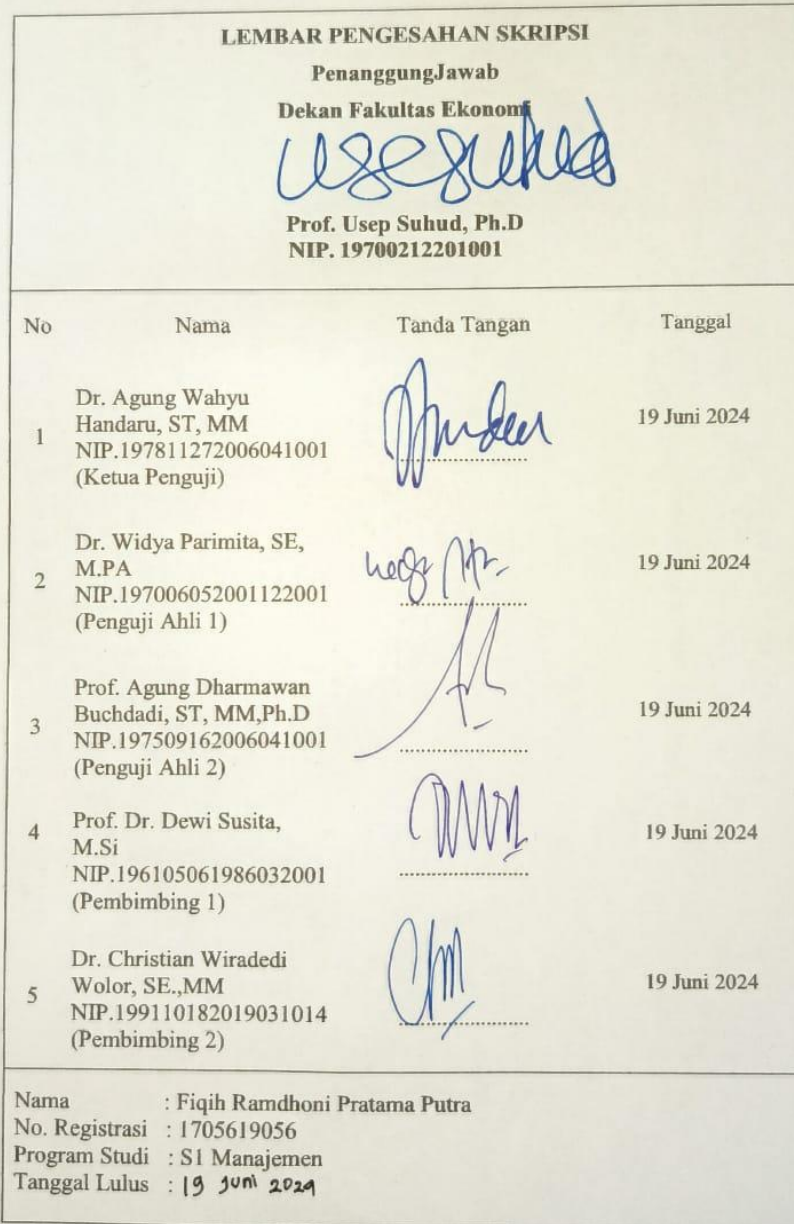 LEMBAR PENGESAHAN SKRIPSI
PenanggungJawab
Dekan Fakultas Ekonomi
Prof. Usep Suhud, Ph.D
NIP. 19700212201001
No Nama Tanda Tangan Tanggal
1 Dr. Agung Wahyu
Handaru, ST, MM
NIP.197811272006041001
(Ketua Penguji)
19 Juni 2024
2 Dr. Widya Parimita, SE,
M.PA
NIP.197006052001122001
(Penguji Ahli 1)
19 Juni 2024
3 Prof. Agung Dharmawan
Buchdadi, ST, MM,Ph.D
NIP.197509162006041001
(Penguji Ahli 2)
19 Juni 2024
4 Prof. Dr. Dewi Susita,
M.Si
NIP.196105061986032001
(Pembimbing 1)
19 Juni 2024
5 Dr. Christian Wiradedi
Wolor, SE.,MM
NIP.199110182019031014
(Pembimbing 2)
19 Juni 2024
Nama : Fiqih Ramdhoni Pratama Putra
No. Registrasi : 1705619056
Program Studi : S1 Manajemen
Tanggal Lulus : 19 Juni 2024